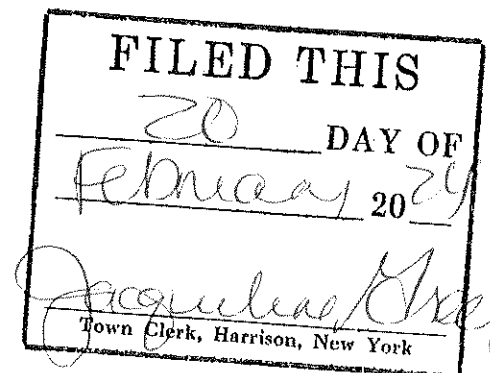 FILED THIS
20 DAY OF
February 2024
Jacqueline Greer
Town Clerk, Harrison, New York